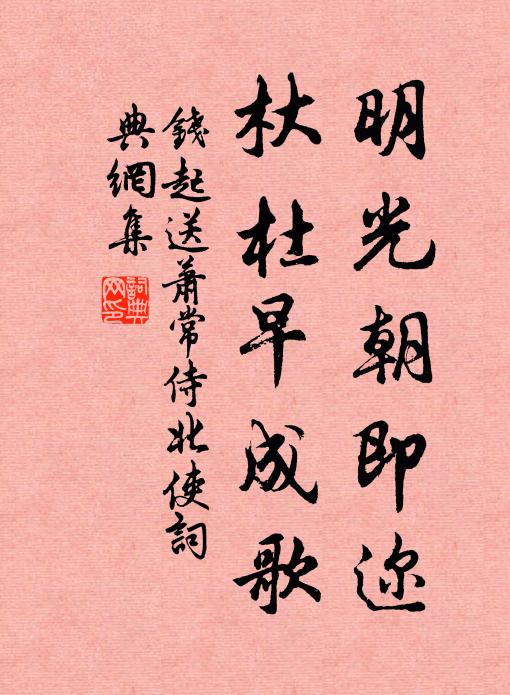 明光朝即迩
杕杜早成歌
錢起送萧常侍北使詞
典網集
詞典网印